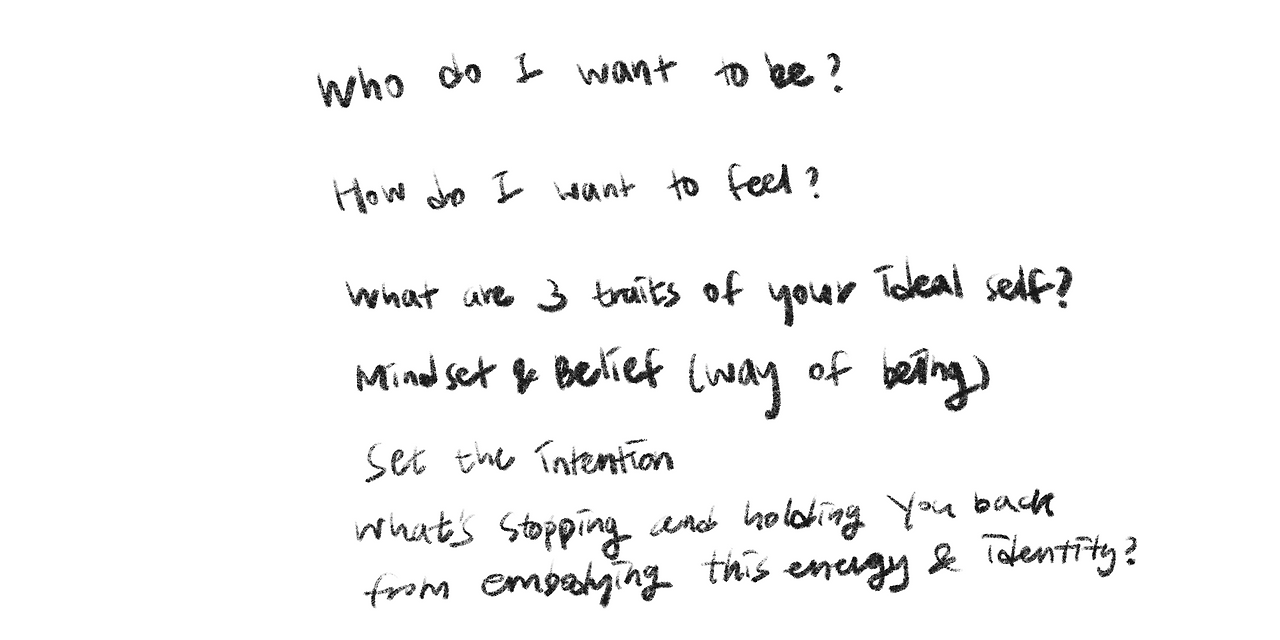 Who do I want to be?
How do I want to feel?
What are 3 traits of your ideal self?
Mindset & Belief (way of being)
Set the intention
what's stopping and holding you back
from embodying this energy & identity?